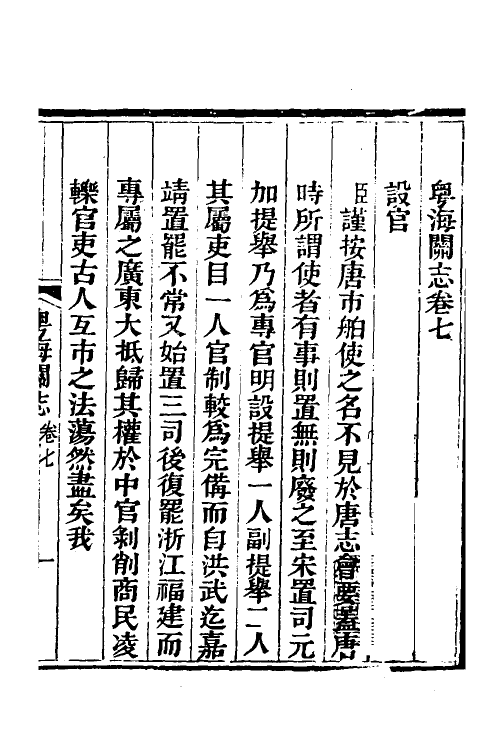 粤海關志卷七
設官
臣謹按唐市舶使之名不見於唐志會要蓋唐
時所謂使者有事則置無則廢之至宋置司元
加提舉乃爲專官明設提舉一人副提舉二人
其屬吏目一人官制較爲完備而自洪武迄嘉
靖置罷不常又始置三司後復罷浙江福建而
專屬之廣東大抵歸其權於中官剝削商民凌
轢官吏古人互市之法蕩然盡矣我
粤海關志 卷七 一